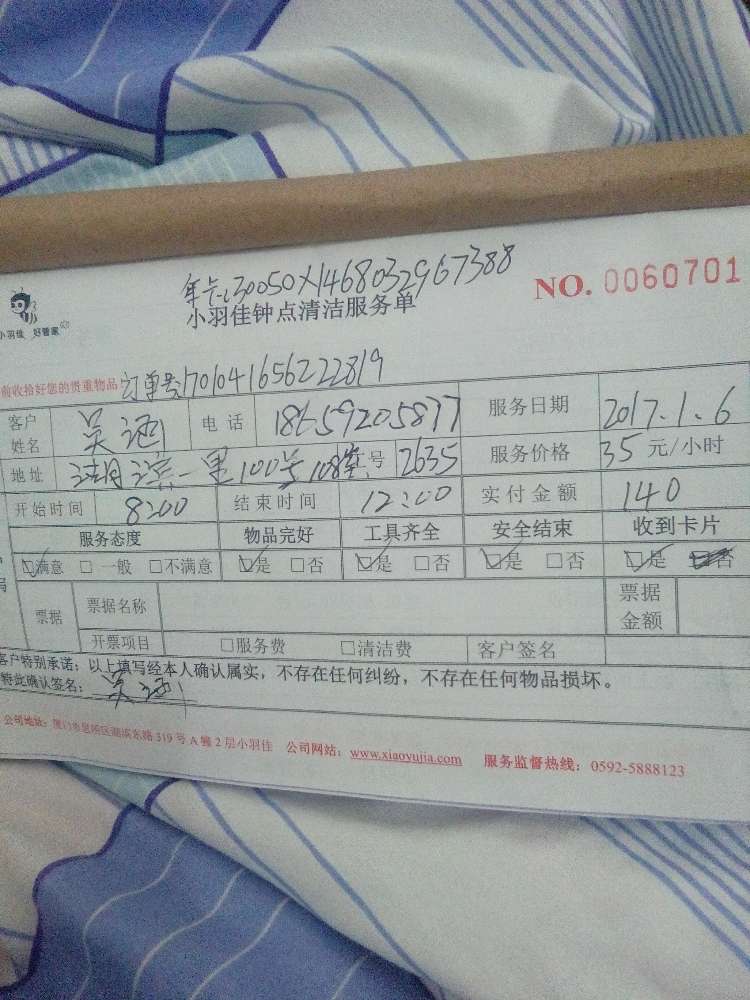 年卡:30050X1468032967388
NO. 0060701
小羽佳 好管家
小羽佳钟点清洁服务单
前收拾好您的贵重物品 订单号:1701041656222819
客户姓名 吴涵 电话 18659205877 服务日期 2017.1.6
地址 湖滨一里100号108室 号 2635 服务价格 35 元/小时
开始时间 8:00 结束时间 12:00 实付金额 140
服务态度 物品完好 工具齐全 安全结束 收到卡片
☑满意 □一般 □不满意 ☑是 □否 ☑是 □否 ☑是 □否 ☑是 否
票据 票据名称 票据金额
开票项目 □服务费 □清洁费 客户签名
客户特别承诺：以上填写经本人确认属实，不存在任何纠纷，不存在任何物品损坏。
特此确认签名：吴涵
公司地址：厦门市思明区湖滨东路319号A幢2层小羽佳 公司网站：www.xiaoyujia.com 服务监督热线：0592-5888123